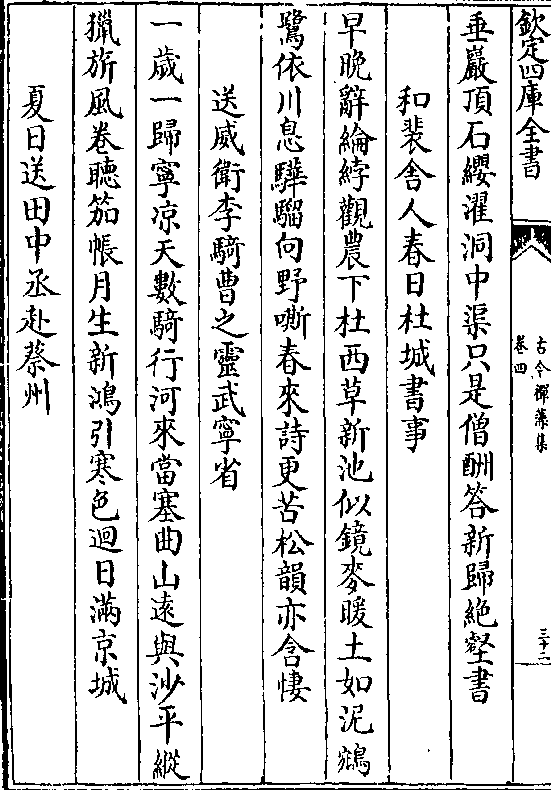 欽定四庫全書
古今禪藻集
卷四
三十二
垂巖頂石纓濯洞中渠只是僧酬答新歸絶壑書
和裴舍人春日杜城書事
早晩辭綸綍觀農下杜西草新池似鏡麥暖土如泥鵷
鷺依川息驊騮向野嘶春來詩更苦松韻亦含悽
送威衛李騎曹之靈武寧省
一歲一歸寧凉天數騎行河來當塞曲山遠與沙平縱
獵旂風卷聽笳帳月生新鴻引寒色迴日滿京城
夏日送田中丞赴蔡州